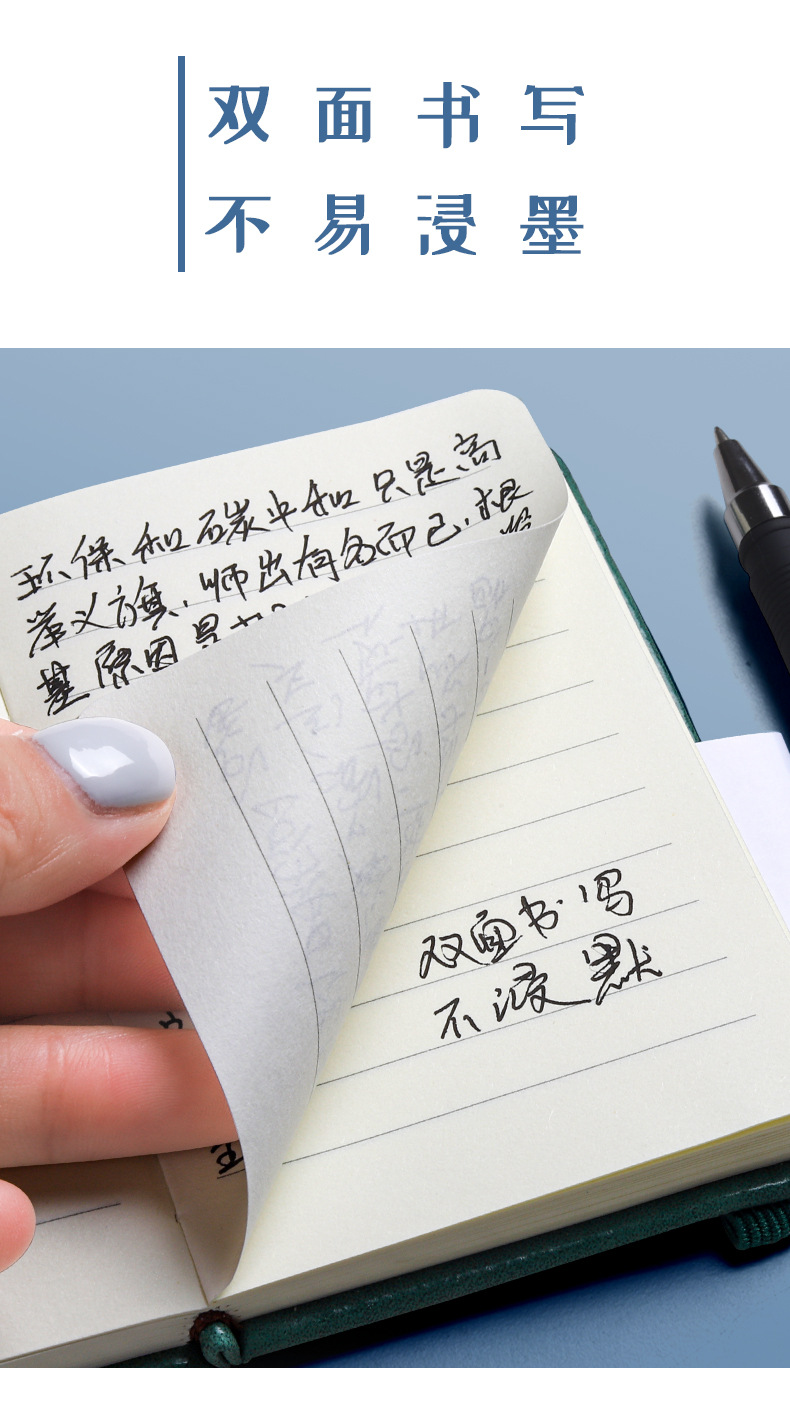 双面书写
不易浸墨
环保和碳中和只是高
举义旗，师出有名而已，根
基原因是
双面书写
不浸默